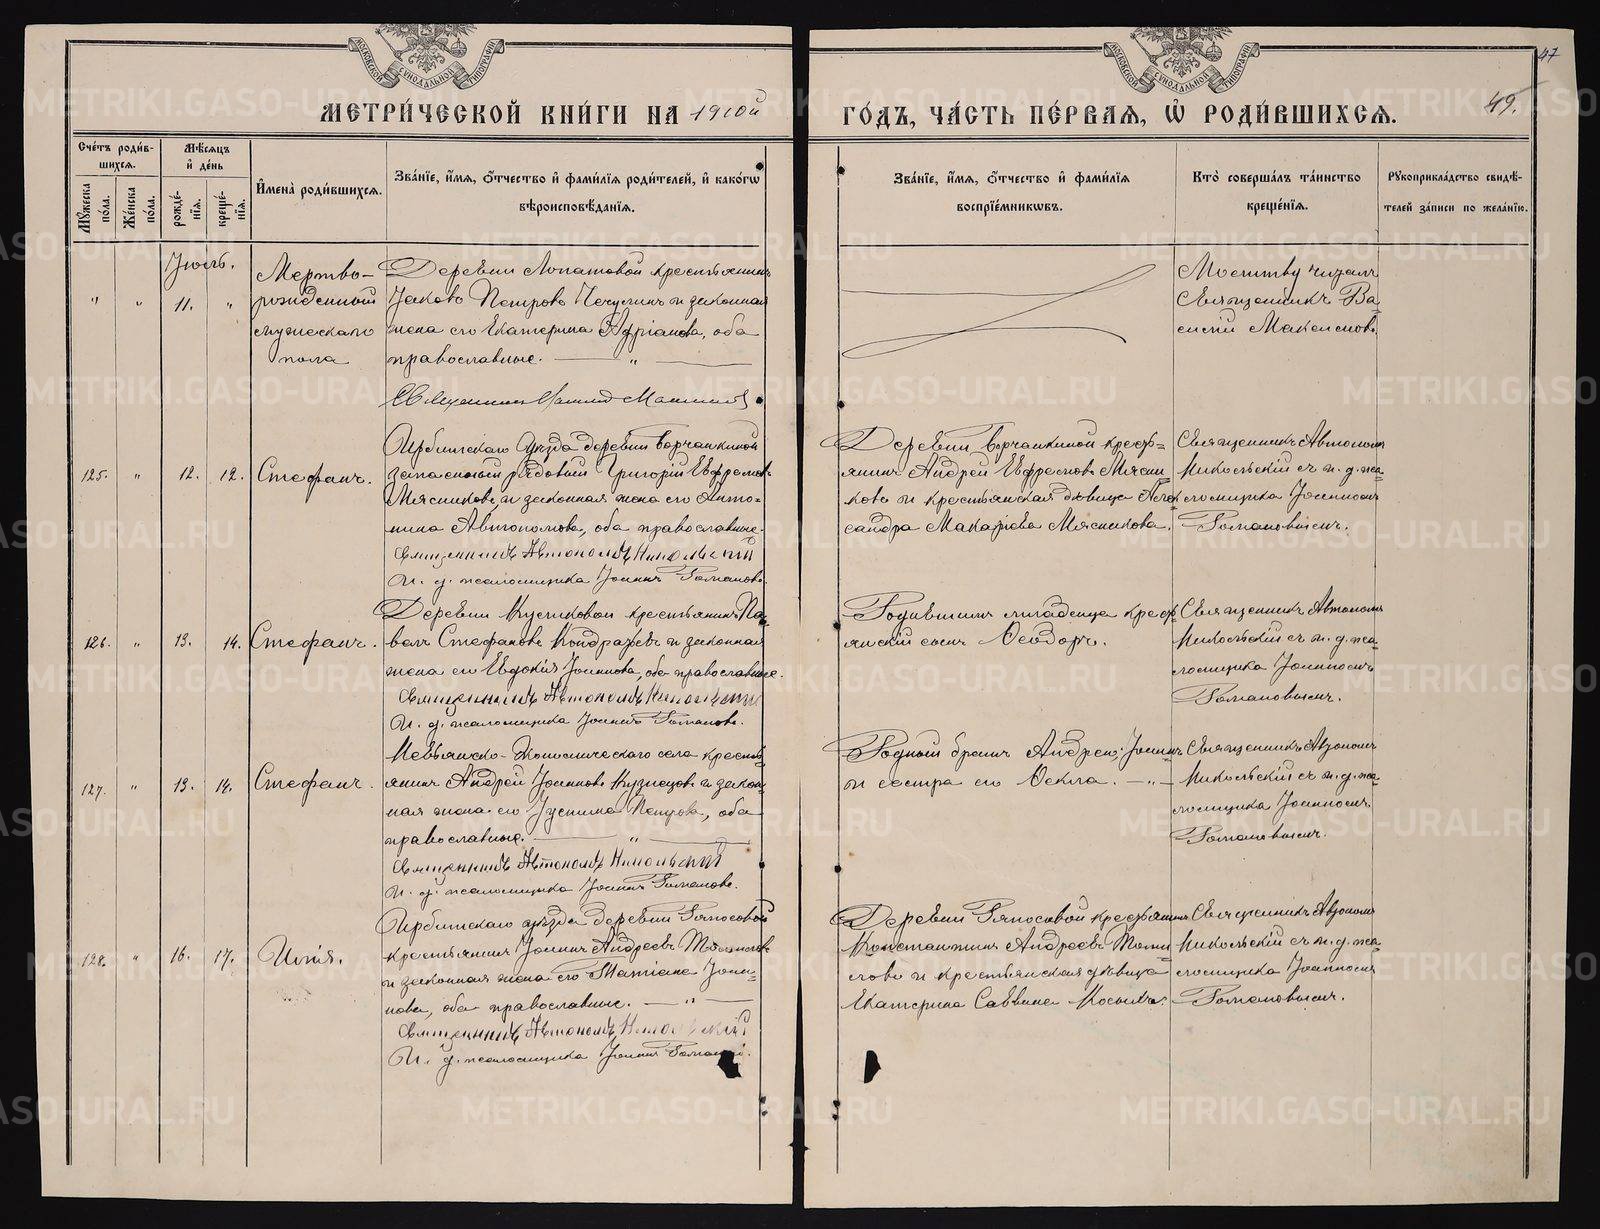 47
49.
МЕТРИ́ЧЕСКОЙ КНИ́ГИ НА 1910й ГО́ДЪ, ЧА́СТЬ ПЕ́РВАѦ, Ѡ҆ РОДИ́ВШИХСѦ.
Сче́тъ роди́в-
шихсѧ.
Мѣ́сѧцъ
и҆ де́нь
Мꙋ́жеска по́ла.
Же́нска по́ла.
рожде́-
нїѧ.
креще́-
нїѧ.
И҆мена̀ роди́вшихсѧ.
Зва́нїе, и҆́мѧ, ѻ҆́тчество и҆ фами́лїѧ роди́телей, и҆ како́гѡ
вѣроисповѣ́данїѧ.
Зва́нїе, и҆́мѧ, ѻ҆́тчество и҆ фами́лїѧ
воспрїе́мникѡвъ.
Кто̀ соверша́лъ та́инство
креще́нїѧ.
Рꙋкоприкла́дство свидѣ́-
телей за́писи по жела́нїю.
Іюль.
" " 11. "
Мертво-
рожденный
мужескаго
пола
Деревни Лопатовой крестьянинъ
Іаковъ Петровъ Чечулинъ и законная
жена его Екатерина Адріанова, оба
православные. — " —
Священникъ Василій Максимовъ
Молитву читалъ
Священникъ Ва-
силій Максимовъ.
125. " 12. 12. Стефанъ.
Ирбитскаго уѣзда деревни Ворчанкиной
запасный рядовый Григорій Евфремовъ
Мясниковъ, и законная жена его Анто-
нина Автономова, оба православные.
Священникъ Автономъ Никольскій
И. д. псаломщика Іоаннъ Романовъ.
Деревни Ворчанкиной кресть-
янинъ Андрей Евфремовъ Мясни-
ковъ и крестьянская дѣвица Алек-
сандра Макарієва Мясникова.
Священникъ Автономъ
Никольскій съ и. д. пса-
ломщика Іоанномъ
Романовымъ.
126. " 13. 14. Стефанъ.
Деревни Кусиковой крестьянинъ Па-
велъ Стефановъ Кондратьевъ и законная
жена его Евдокія Іоаннова, оба православные.
Священникъ Автономъ Никольскій
И. д. псаломщика Іоаннъ Романовъ.
Родившаго младенца кресть-
янскій сынъ Ѳеодоръ.
Священникъ Автономъ
Никольскій съ и. д. пса-
ломщика Іоанномъ
Романовымъ.
127. " 13. 14. Стефанъ.
Невьянско-Экономическаго села кресть-
янинъ Андрей Іоанновъ Кузнецовъ и закон-
ная жена его Іустина Петрова, оба
православные. — " —
Священникъ Автономъ Никольскій
И. д. псаломщика Іоаннъ Романовъ.
Родной братъ Андрея, Іоаннъ
и сестра его Ѳекла. — " —
Священникъ Автономъ
Никольскій съ и. д. пса-
ломщика Іоанномъ
Романовымъ.
128. " 16. 17. Илія.
Ирбитскаго уѣзда деревни Ряпосовой
крестьянинъ Іоаннъ Андреевъ
и законная жена его Татіана Іоан-
нова, оба православные. — " —
Священникъ Автономъ Никольскій
И. д. псаломщика Іоаннъ
Деревни Ряпосовой крестьянинъ
Константинъ Андреевъ
и крестьянская дѣвица
Екатерина Саввина
Священникъ Автономъ
Никольскій съ и. д. пса-
ломщика Іоанномъ
Романовымъ.
METRIKI.GASO-URAL.RU